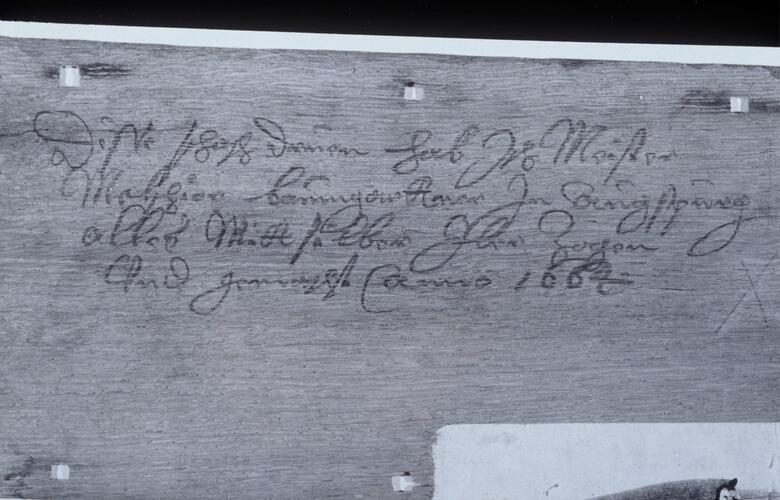 Disse schreib druen hab Ich Meister
Melchior baumgartner In augspurg
alles Mitt silber Iber Zogen
Vnd gemacht anno 166